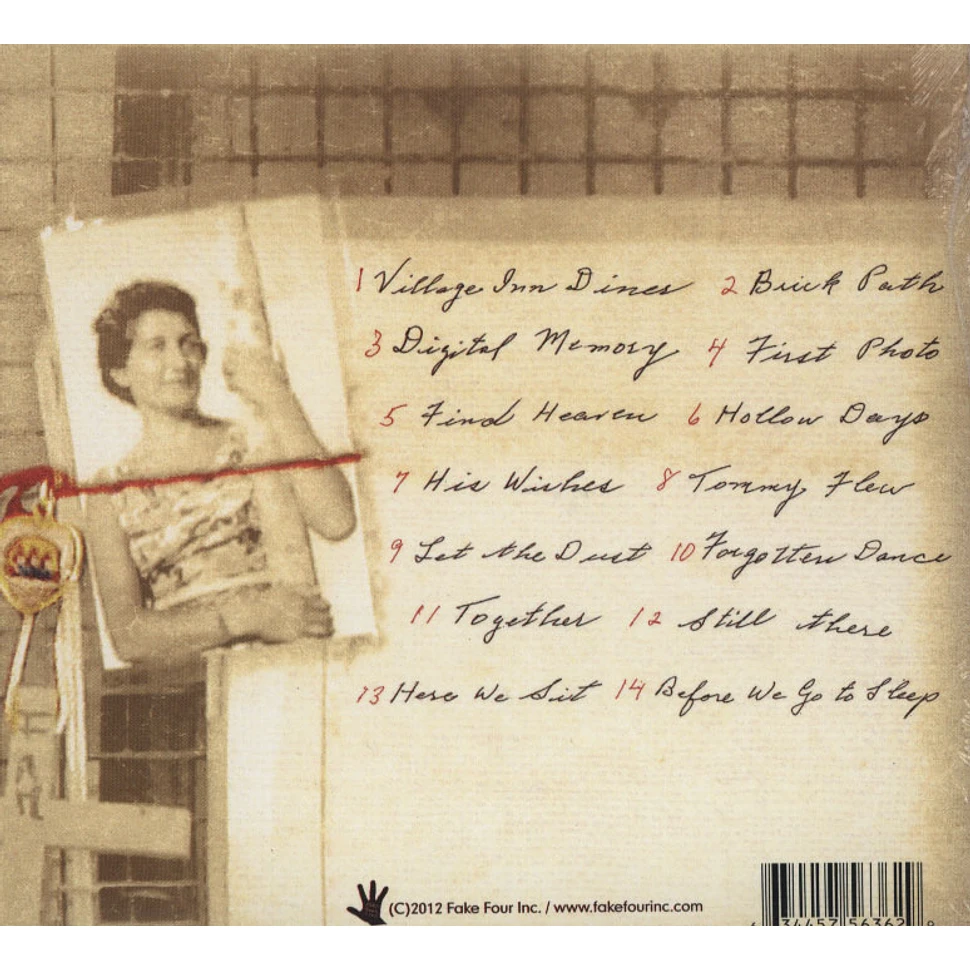 1 Village Inn Diner 2 Brick Path
3 Digital Memory 4 First Photo
5 Find Heaven 6 Hollow Days
7 His Wishes 8 Tommy Flew
9 Let the Dust 10 Forgotten Dance
11 Together 12 Still there
13 Here We Sit 14 Before We Go to Sleep
(C)2012 Fake Four Inc. / www.fakefourinc.com
34457 56362